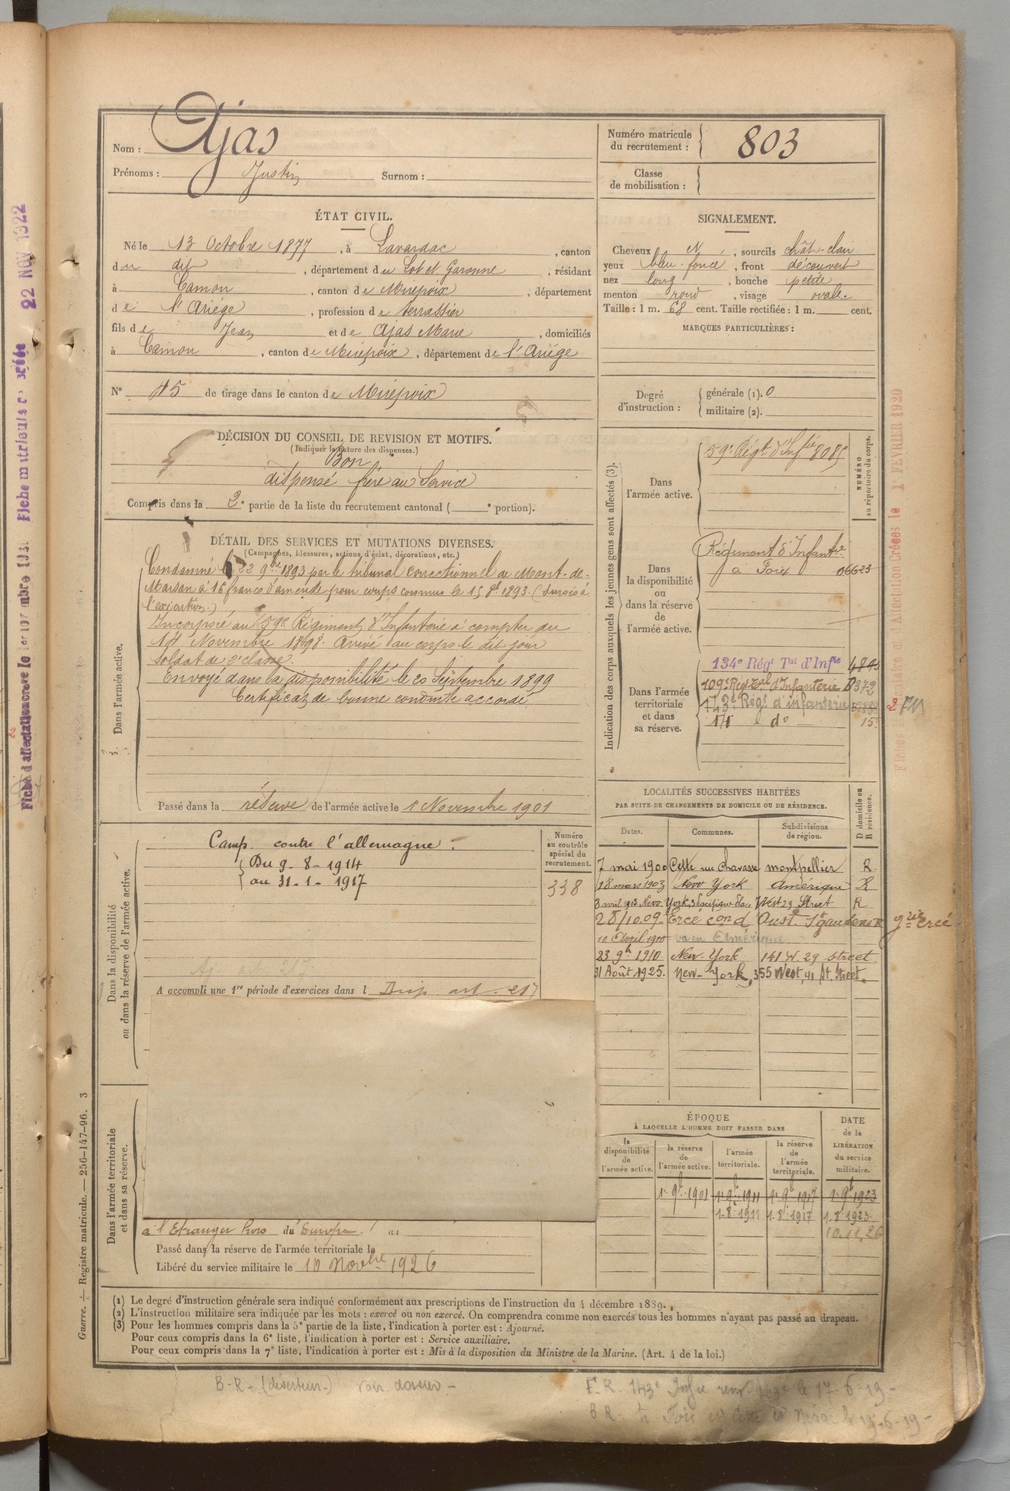 Nom : Ajas
Prénoms : Justin Surnom :
Numéro matricule du recrutement : 803
Classe de mobilisation :
ÉTAT CIVIL.
Né le 13 Octobre 1877, à Lavardac, canton
du dit, département du Lot et Garonne, résidant
à Camon, canton de Mirepoix, département
de l'Ariége, profession de terrassier
fils de Jean et de Ajas Marie, domiciliés
à Camon, canton de Mirepoix, département de l'Ariége
N° 45 de tirage dans le canton de Mirepoix
SIGNALEMENT.
Cheveux N, sourcils chât-clair
yeux bleu-foncé, front découvert
nez long, bouche petite
menton rond, visage ovale.
Taille : 1 m. 68 cent. Taille rectifiée : 1 m. cent.
MARQUES PARTICULIÈRES :
Degré d'instruction :
générale (1). 0
militaire (2).
DÉCISION DU CONSEIL DE REVISION ET MOTIFS.
(Indiquer la nature des dispenses.)
Bon
dispensé frère au Service
Compris dans la 2e partie de la liste du recrutement cantonal ( e portion).
DÉTAIL DES SERVICES ET MUTATIONS DIVERSES.
(Campagnes, blessures, actions d'éclat, décorations, etc.)
Dans l'armée active.
Condamné le 22 9bre 1893 par le tribunal correctionnel de Mont-de-
Marsan à 16 francs d'amende pour corps commis le 15 8bre 1893 (sursois à
l'exécution.)
Incorporé au 59e Régiment d'Infanterie à compter du
14 Novembre 1898. Arrivé au corps le dit jour
Soldat de 2e classe.
Envoyé dans la disponibilité le 20 Septembre 1899
Certificat de bonne conduite accordé.
Passé dans la réserve de l'armée active le 1 Novembre 1901
Indication des corps auxquels les jeunes gens sont affectés (3).
NUMÉRO au répertoire du corps.
Dans l'armée active.
59e Régt d'Infie 8085
Dans la disponibilité ou dans la réserve de l'armée active.
Régiment d'Infanie
à Foix 06623
Dans l'armée territoriale et dans sa réserve.
134e Régt Tal d'Infie
109e Régt d'Infanterie B372
143e Régt d'infanterie
do 15
2e
Dans la disponibilité ou dans la réserve de l'armée active.
Camp. contre l'allemagne :
Du 9-8-1914
au 31-1-1917
Numéro au contrôle spécial du recrutement.
338
A accompli une 1re période d'exercices dans l Disp. art. 217
LOCALITÉS SUCCESSIVES HABITÉES
PAR SUITE DE CHANGEMENTS DE DOMICILE OU DE RÉSIDENCE.
Dates. Communes. Subdivisions de région. D domicile ou R résidence.
7 mai 1900 Cette rue Chavasse montpellier R
18 mars 1903 New York Amérique R
3 avril 1903 New York, West 29 Street R
28/10.09 Ercé cond Oust. St gaudens R
23 9bre 1910 New-York 141 W. 29 street
31 Août 1925. New-York, 355 West, 41 St. Street.
ÉPOQUE
À LAQUELLE L'HOMME DOIT PASSER DANS
la disponibilité de l'armée active.
la réserve de l'armée active.
l'armée territoriale.
la réserve de l'armée territoriale.
DATE de la LIBÉRATION du service militaire.
1.9bre 1901 1.9bre 1911 1.9bre 1917 1.9bre 1923
1.8bre 1911 1.8bre 1917 1.8bre 1923
10.11.26
Dans l'armée territoriale et dans sa réserve.
à l'Etranger hors du Europe.
Passé dans la réserve de l'armée territoriale le
Libéré du service militaire le 10 Novbre 1926
(1) Le degré d'instruction générale sera indiqué conformément aux prescriptions de l'instruction du 4 décembre 1889.
(2) L'instruction militaire sera indiquée par les mots : exercé ou non exercé. On comprendra comme non exercés tous les hommes n'ayant pas passé au drapeau.
(3) Pour les hommes compris dans la 5e partie de la liste, l'indication à porter est : Ajourné.
Pour ceux compris dans la 6e liste, l'indication à porter est : Service auxiliaire.
Pour ceux compris dans la 7e liste, l'indication à porter est : Mis à la disposition du Ministre de la Marine. (Art. 4 de la loi.)
B-R- (déserteur-) voir dossier -
F. R. 143e le 17-6-19-
B R- Foix
Guerre. — Registre matricule. — 256-147-96. 3
22 NOV 1922
Fiche matricule créée
Fiche d'affectation créée le
Affectation Créées le 1 FÉVRIER 1920